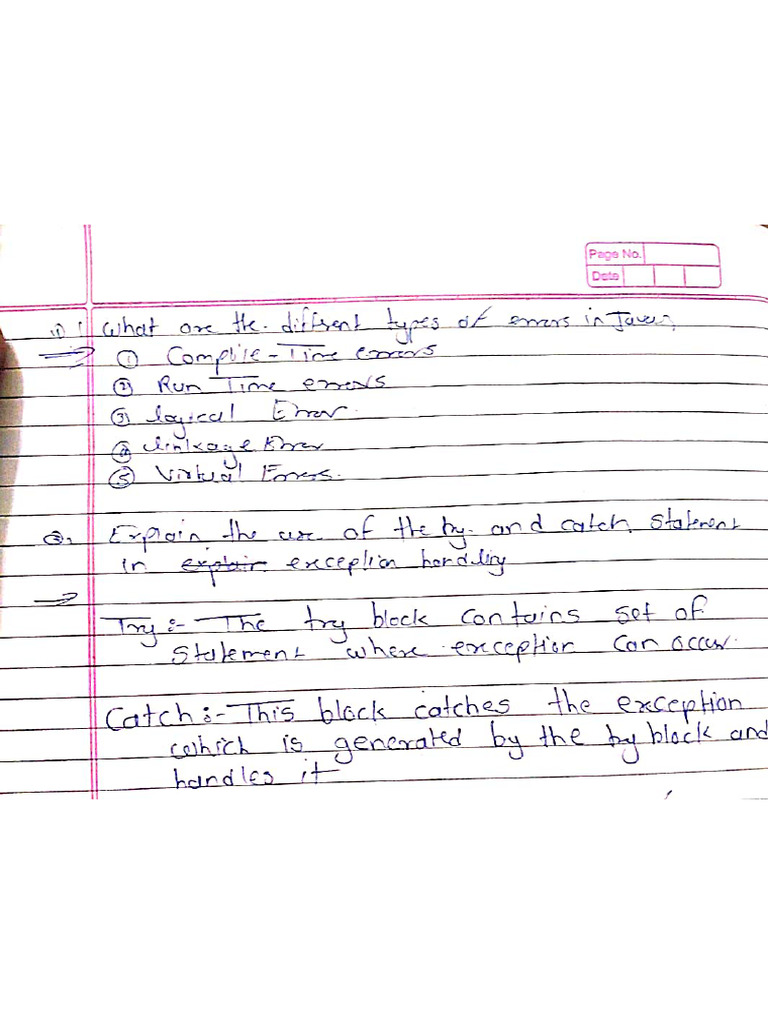 Page No.
Date
1) What are the different types of errors in Java.
① Compile-Time errors
② Run Time errors
③ logical Error.
④ linkage Error
⑤ Virtual Errors.
2. Explain the use of the try and catch statement
in explain exception handling
Try :- The try block contains set of
statement where exception can occur.
Catch :- This block catches the exception
which is generated by the try block and
handles it